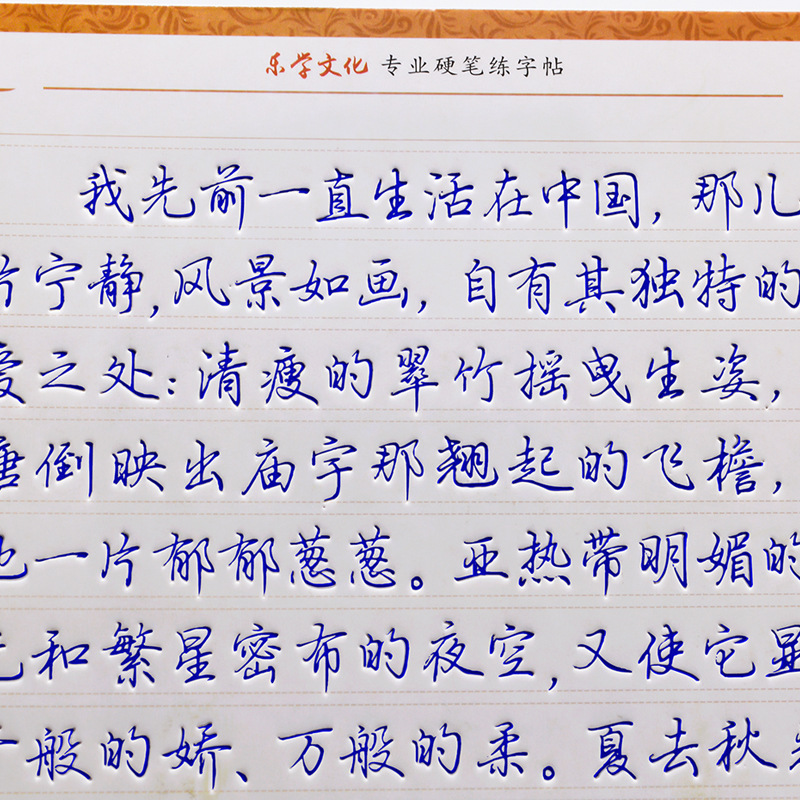 乐学文化 专业硬笔练字帖
我先前一直生活在中国，那儿
宁静，风景如画，自有其独特的
爱之处：清瘦的翠竹摇曳生姿，
塘倒映出庙宇那翘起的飞檐，
也一片郁郁葱葱。亚热带明媚的
光和繁星密布的夜空，又使它显
千般的娇、万般的柔。夏去秋来